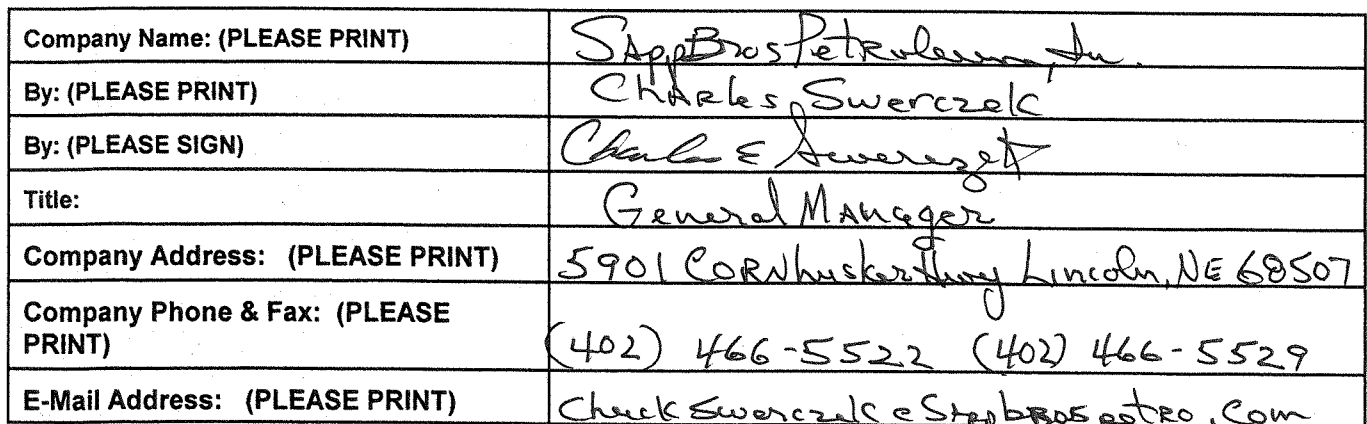 Company Name: (PLEASE PRINT) SAppBros Petroleum, Inc.
By: (PLEASE PRINT) Charles Swerczek
By: (PLEASE SIGN) Charles E Swerczek
Title: General Manager
Company Address: (PLEASE PRINT) 5901 Cornhusker Hwy Lincoln, NE 68507
Company Phone & Fax: (PLEASE
PRINT) (402) 466-5522 (402) 466-5529
E-Mail Address: (PLEASE PRINT) ChuckSwerczek@Sappbrospetro.com